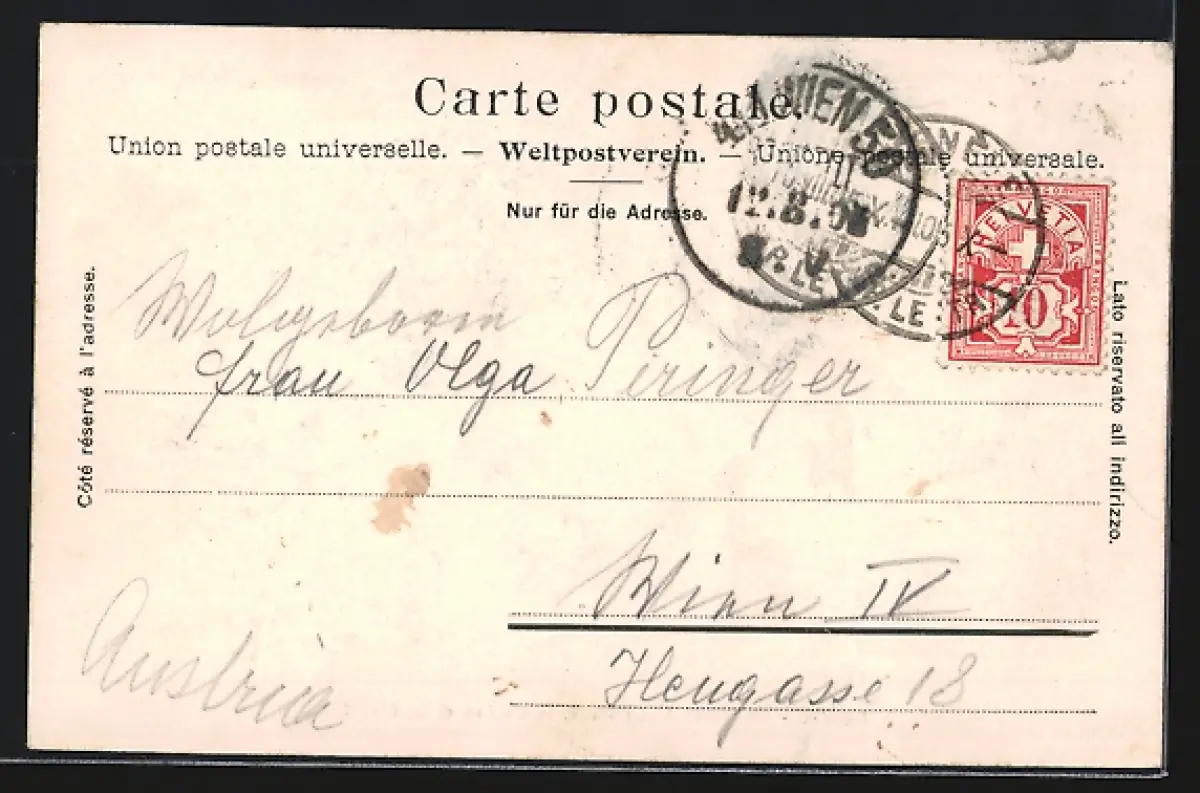 Carte postale.
Union postale universelle. — Weltpostverein. — Unione postale universale.
Nur für die Adresse.
WIEN 50
12.8.05
HELVETIA
10
Côté réservé à l'adresse.
Lato riservato all indirizzo.
Wolgeboorn
frau Olga Piringer
Wien IV
Heugasse 18
Austria